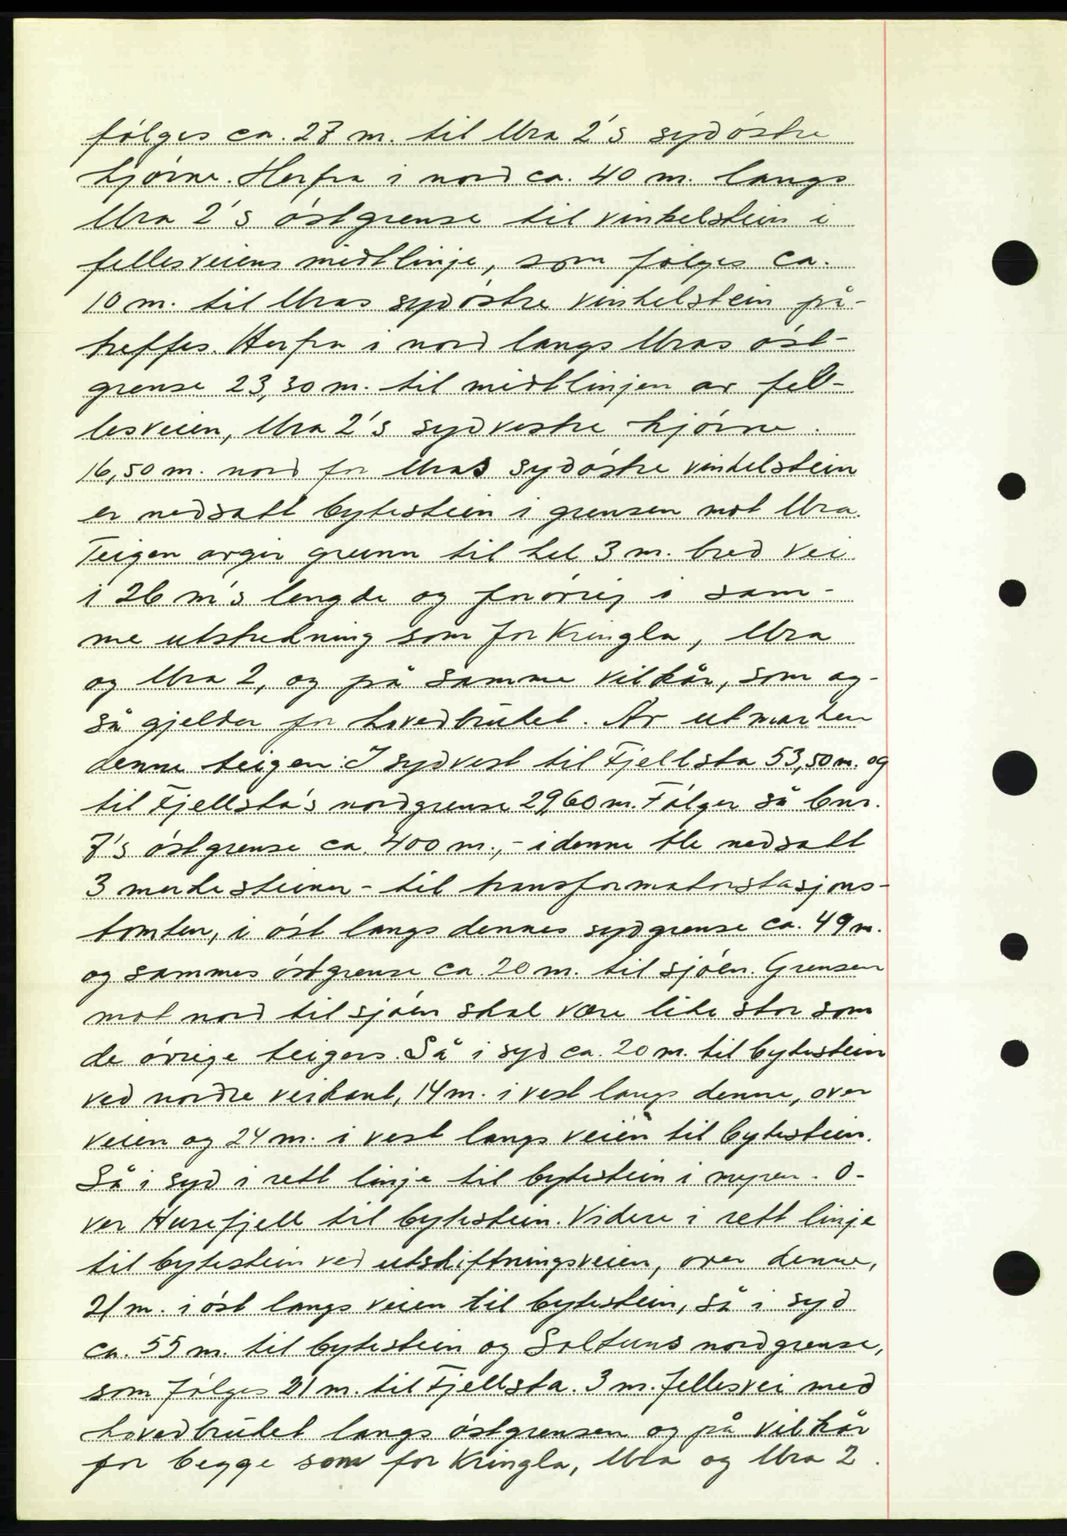 følges ca. 27 m. til Ura 2's sydøstre
hjørne. Herfra i nord ca. 40 m. langs
Ura 2's østgrense til vinkelstein i
fellesveiens midtlinje, som følges ca.
10 m. til Uras sydøstre vinkelstein på-
treffes. Herfra i nord langs Uras øst-
grense 23,30 m. til midtlinjen av fel-
lesveien, Ura 2's sydvestre hjørne.
16,50 m. nord for Uras sydøstre vinkelstein
er nedsatt bytestein i grensen mot Ura.
Teigen avgir grunn til hel 3 m. bred vei
i 26 m's lengde og forøvrig i sam-
me utstrekning som for Kringla, Ura
og Ura 2, og på samme vilkår, som og-
så gjelder for hovedbruket. Av utmarken
denne teigen: I sydvest til Fjellsta 53,50 m. og
til Fjellsta's nordgrense 29,60 m. Følger så bnr.
7's østgrense ca. 400 m., - i denne ble nedsatt
3 merkesteiner - til transformatorstasjons-
tomten, i øst langs dennes sydgrense ca. 49 m.
og sammes østgrense ca 20 m. til sjøen. Grensen
mot nord til sjøen skal være like stor som
de øvrige teigers. Så i syd ca. 20 m. til bytestein
ved nordre veikant, 14 m. i vest langs denne, over
veien og 24 m. i vest langs veien til bytestein.
Så i syd i rett linje til bytestein i myren. O-
ver Husefjell til bytestein. Videre i rett linje
til bytestein ved utskiftningsveien, over denne,
21 m. i øst langs veien til bytestein, så i syd
ca. 55 m. til bytestein og Soltuns nordgrense,
som følges 21 m. til Fjellsta. 3 m. fellesvei med
hovedbruket langs østgrensen og på vilkår
for begge som for Kringla, Ura og Ura 2.